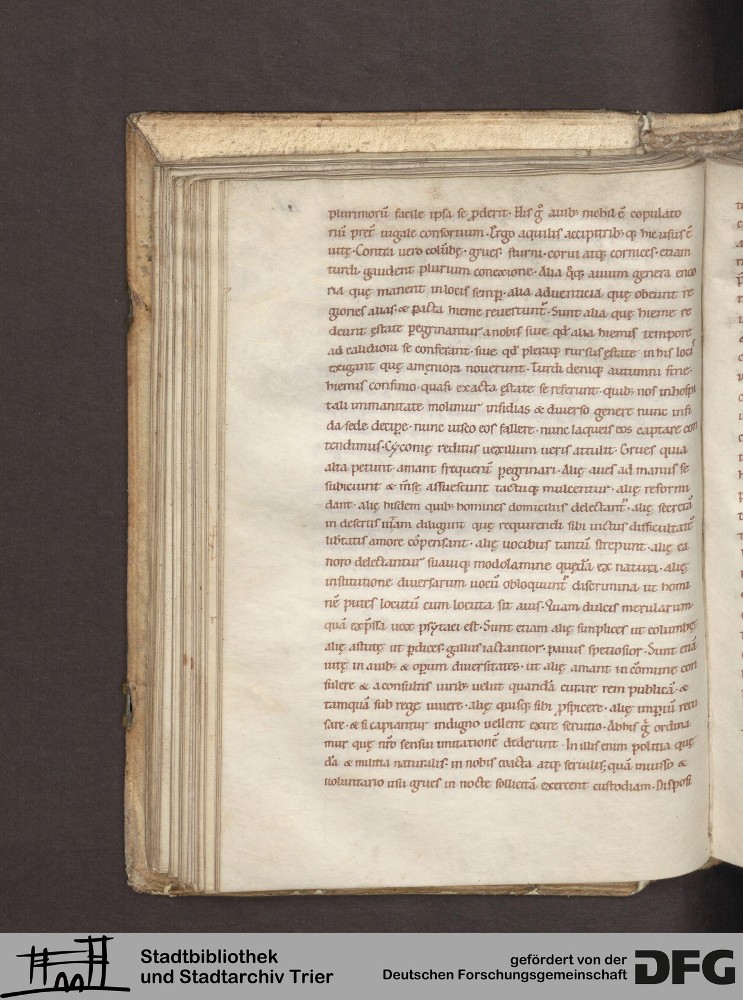 plurimorū facile ipsa se ꝓderit. His gͦ auib; nichil ē copulato
riū pret̄ iugale consortium. Ergo aquilis accipitrib; qꝫ hic usus ē
uitę. Contra uero colūbę. grues. sturni. corui atqꝫ cornices. etiam
turdi. gaudent plurium conexione. Alia qͦqꝫ auium genera enco
ria quę manent in locis semꝑ. alia aduenticia quę obeunt re
giones alias. & ꝑacta hieme reuertunt᷒. Sunt alia quę hieme re
deunt ęstate peregrinantur a nobis siue qđ alia hiemis tempore
ad calidiora se conferant. siue qđ pleraqꝫ rursus ęstate in his locis
exigant quę amęniora nouerint. Turdi deniqꝫ autumni fine.
hiemis confinio. quasi exacta ęstate se referunt. quib; nos inhospi
tali immanitate molimur insidias & diuerso genere nunc infi
da sede decipe. nunc uisco eos fallere. nunc laqueis eos captare con
tendimus. Cyconię reditus uexillum ueris attulit. Grues quia
alta petunt amant frequenti peregrinari. Alię aues ad manus se
subiciunt & m̄sę assuescunt tactuqꝫ mulcentur. alię reformi
dant. alię hisdem quib; homines domiciliis delectant᷒. alię secretā
in desertis uitam diligunt quę requirendi sibi uictus difficultatē
lib̄tatis amore cōpensant. alię uocibus tantū strepunt. alię ca
noro delectantur suauiqꝫ modolamine quędā ex natura. alię
institutione diuersarum uocū obloquunt᷒ discrimina ut homi
nē putes locutū cum locuta sit auis. Quam dulcis merularum
quā exp̄ssa uox psytaci est. Sunt etiam alię simplices ut columbę
alię astutę ut ꝑdices. gallus iactantior. pauus spetiosior. Sunt etiā
uitę in auib; & oꝑum diuersitates. ut alię amant in cōmune con
sulere & aconsultis uirib; uelut quandā curare rem publicā. &
tamquā sub rege uiuere. alię quisqꝫ sibi ꝓspicere. alię imꝑiū recu
sare. & si capiantur indigno uellent exire seruitio. Ab his gͦ ordina
mur quę nr̄o sensui imitationē dederunt. In illis enim politia quę
dā & militia naturalis. in nobis coacta atqꝫ seruilis; quā iniusso &
uoluntario usu grues in nocte sollicitā exercent custodiam. Disposi
Stadtbibliothek
und Stadtarchiv Trier
gefördert von der
Deutschen Forschungsgemeinschaft
DFG